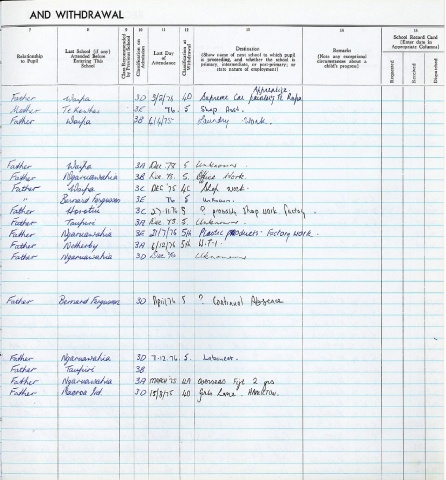 AND WITHDRAWAL
7 8 9 10 11 12 13 14 15
Relationship to Pupil
Last School (if any) Attended Before Entering This School
Class Recommended by Previous School
Classification on Admission
Last Day of Attendance
Classification at Withdrawal
Destination
(Show name of next school to which pupil is proceeding, and whether the school is primary, intermediate, or post-primary; or state nature of employment)
Remarks
(Note any exceptional circumstances about a child's progress)
School Record Card
(Enter date in Appropriate Columns)
Requested
Received
Dispatched
Apprentice
Father Waipa 3D 3/2/76 4D Supreme Car
Mother Te Kauhata 3E 76. 5 Shop Asst.
Father Waipa 3B 6/6/75 Laundry Work.
Father Waipa 3A Dec 75 5 Unknown
Father Ngaruawahia 3B Dec 75. 5. Office Work.
Father Waipa 3C DEC 75 4C Shop work.
" Bernard Fergusson 3E 76 5 unknown.
Father Horotiu 3C 27.11.76 5 ? possibly Shop work Factory.
Father Taupiri 3A Dec 75 5. Unknown.
Father Ngaruawahia 3E 21/7/76 5H Plastic products. Factory work.
Father 3A 6/12/76 5H W.T.I.
Father Ngaruawahia 3D Dec Unknown
Father Bernard Fergusson 3D April 76 5 ? Continual Absence
Father Ngaruawahia 3D 7.12.76 5. Labourer.
Father Taupiri 3B
Father Ngaruawahia 3A MARCH 75 4A overseas Fiji 2 yrs
Father Rd. 3D 15/8/75 4D Lane. HAMILTON.